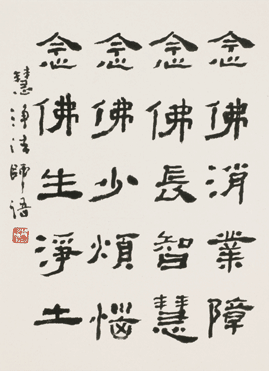 念佛消業障
念佛長智慧
念佛少煩惱
念佛生淨土
慧淨法師語